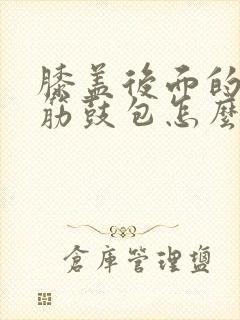 膝盖後面的
筋鼓包怎麼
倉庫管理鹽